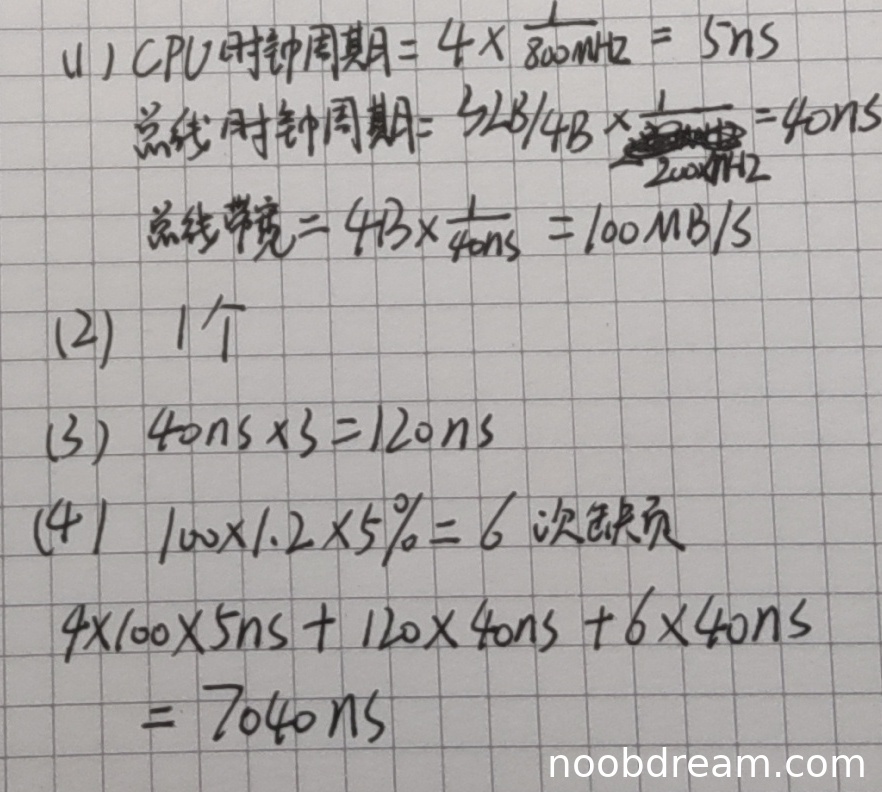 (1) CPU时钟周期 = 4 × 1/800MHz = 5ns
总线时钟周期 = 32B/4B × 1/200MHz = 40ns
总线带宽 = 4B × 1/40ns = 100MB/s
(2) 1个
(3) 40ns × 3 = 120ns
(4) 100×1.2×5% = 6 次缺页
4×100×5ns + 120×40ns + 6×40ns
= 7040ns
noobdream.com